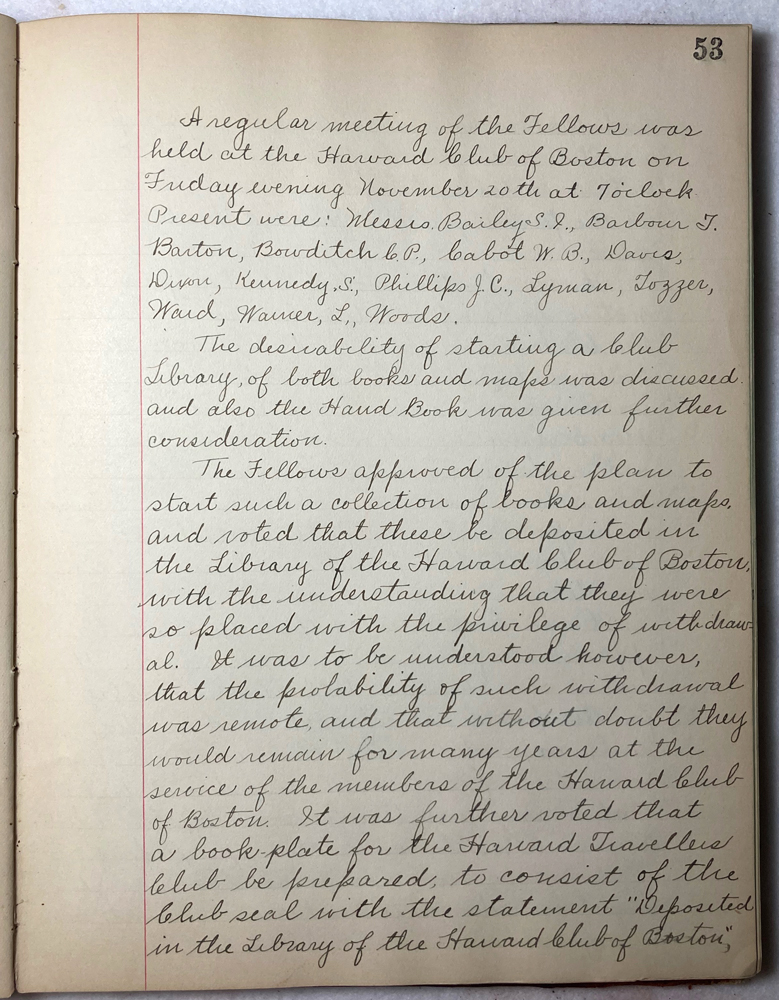 53
A regular meeting of the Fellows was
held at the Harvard Club of Boston on
Friday evening November 20th at 7 o'clock.
Present were: Messrs. Bailey S. I., Barbour T.
Barton, Bowditch C P., Cabot W. B., Davis,
Dixon, Kennedy, S., Phillips J. C., Lyman, Tozzer,
Ward, Warner, L., Woods.
The desirability of starting a Club
Library, of both books and maps was discussed.
and also the Hand Book was given further
consideration.
The Fellows approved of the plan to
start such a collection of books and maps,
and voted that these be deposited in
the Library of the Harvard Club of Boston,
with the understanding that they were
so placed with the privilege of withdraw-
al. It was to be understood however,
that the probability of such withdrawal
was remote, and that without doubt they
would remain for many years at the
service of the members of the Harvard Club
of Boston. It was further voted that
a book-plate for the Harvard Travellers
Club be prepared, to consist of the
Club seal with the statement "Deposited
in the Library of the Harvard Club of Boston",